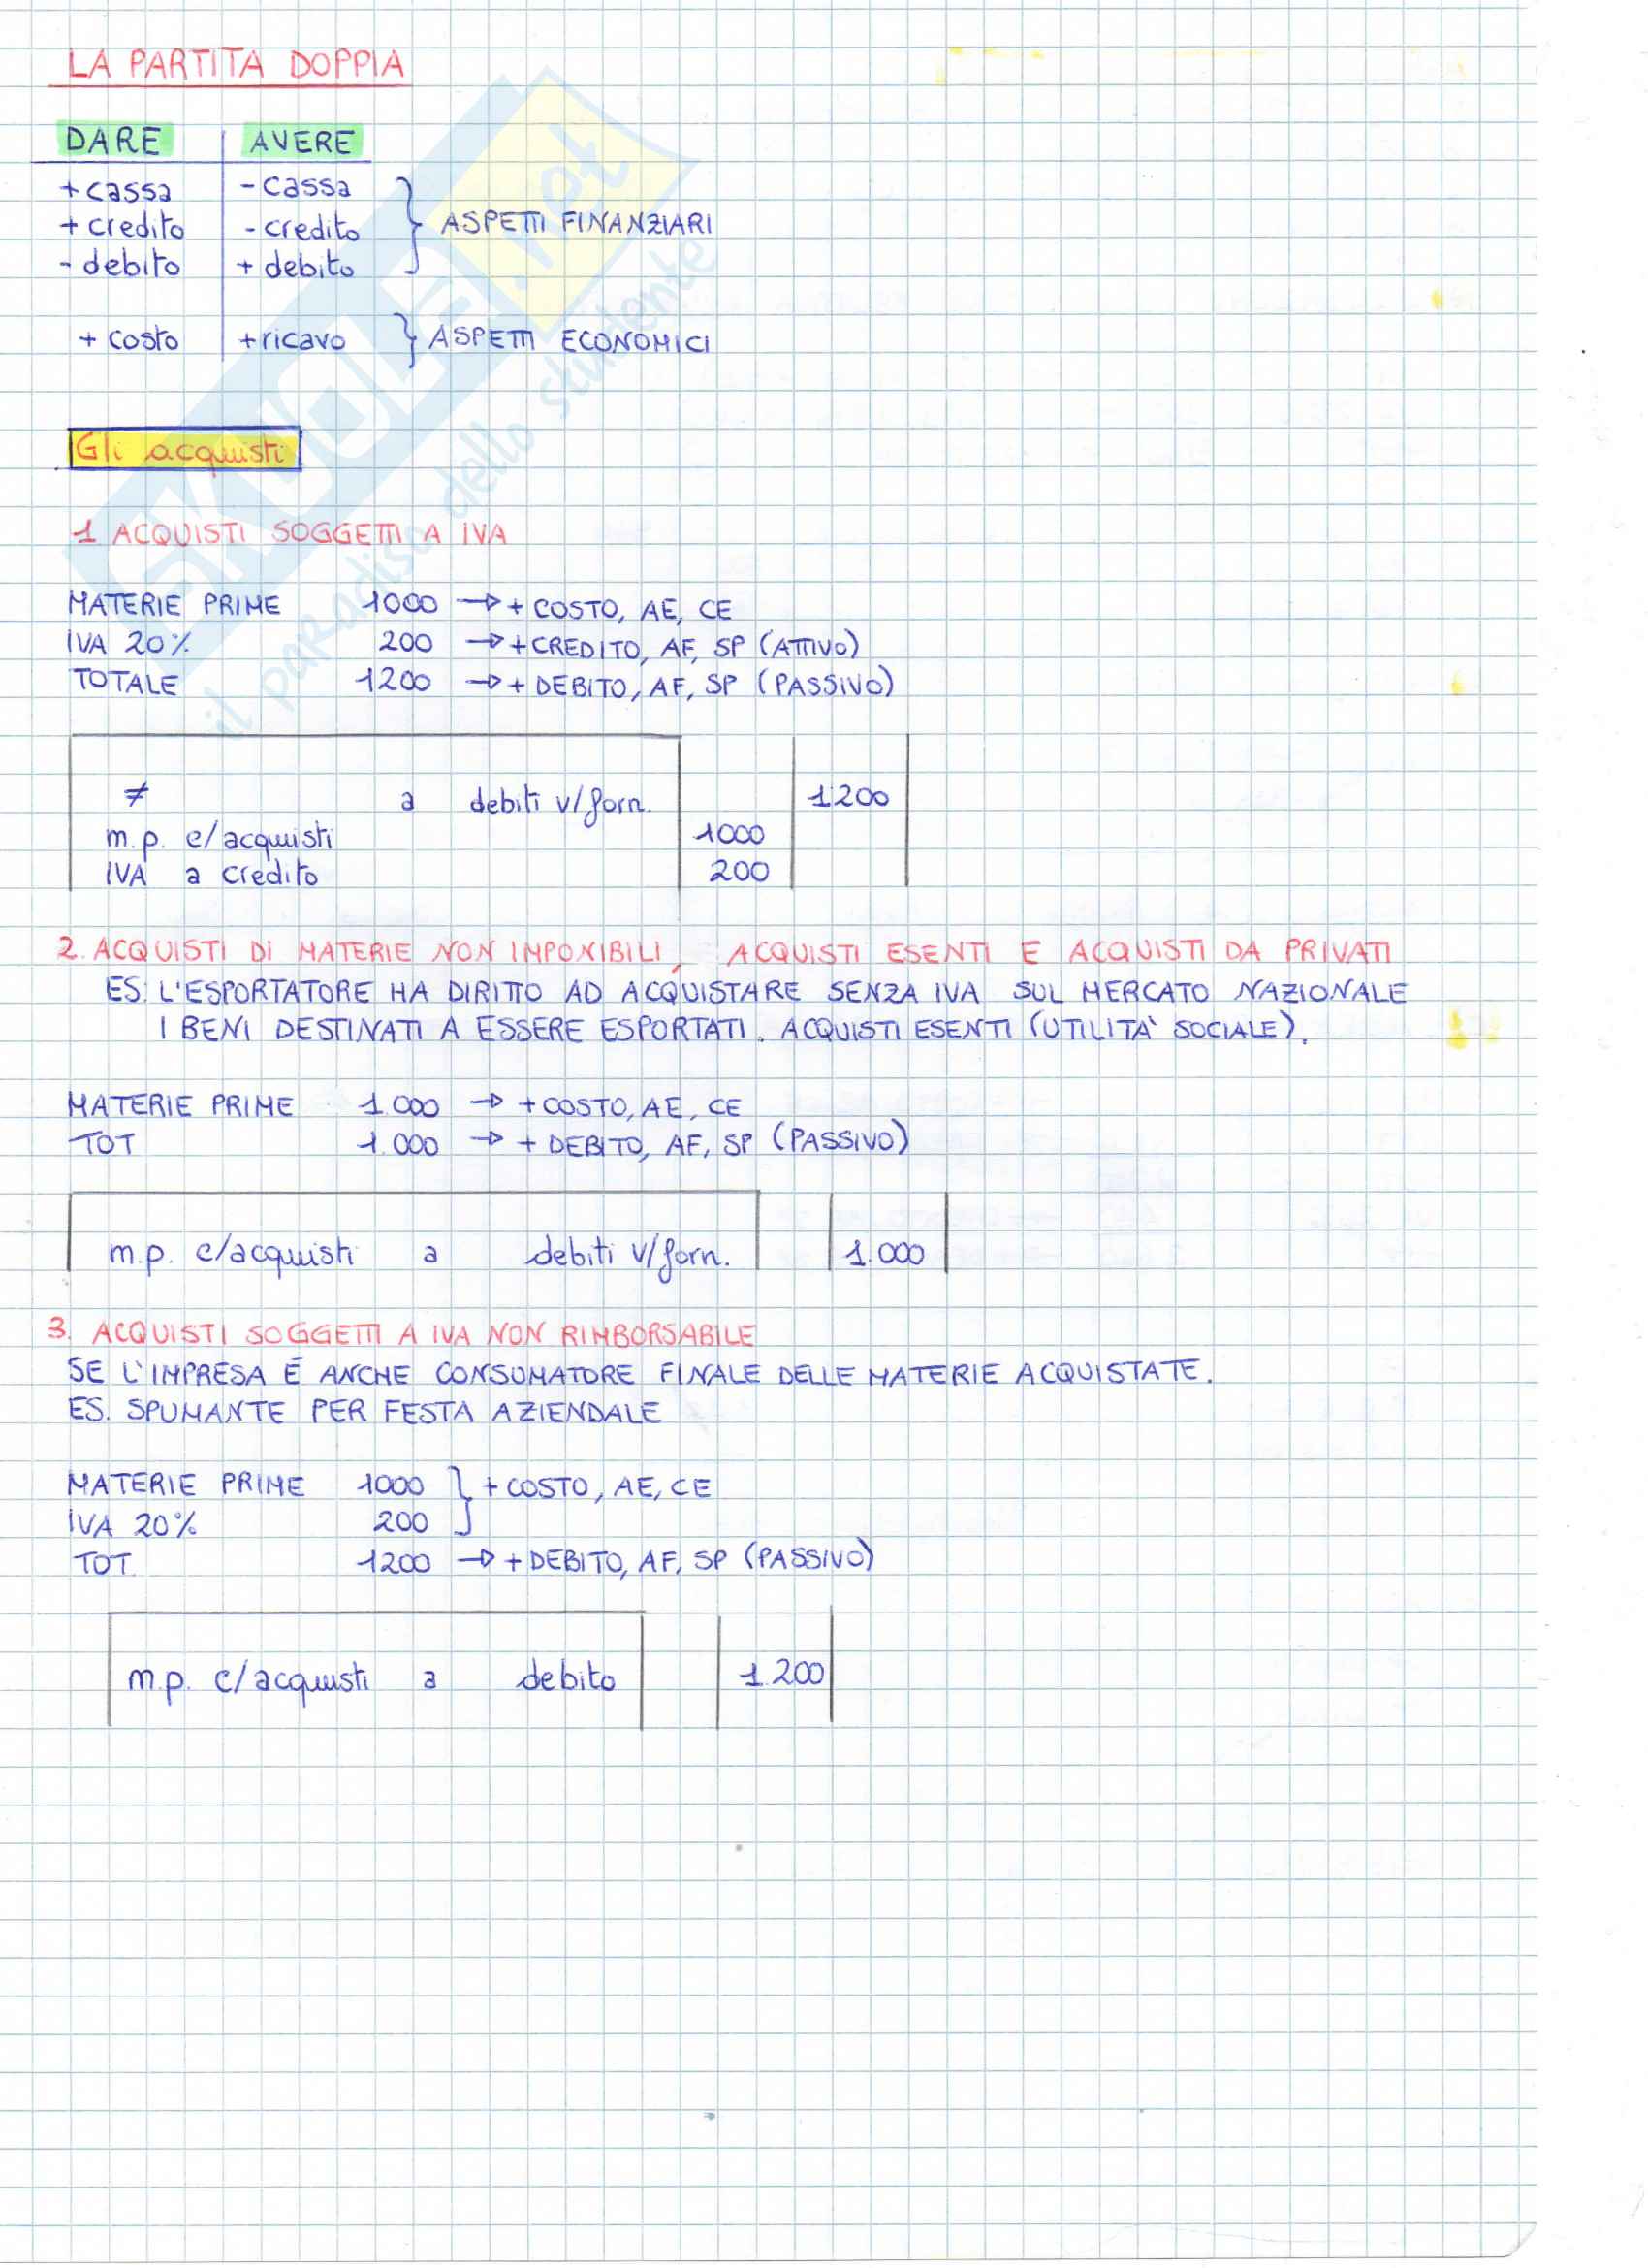 LA PARTITA DOPPIA
DARE AVERE
+cassa -cassa
+credito -credito ASPETTI FINANZIARI
- debito + debito
+ costo +ricavo ASPETTI ECONOMICI
Gli acquisti
1 ACQUISTI SOGGETTI A IVA
MATERIE PRIME 1000 → + COSTO, AE, CE
IVA 20% 200 → +CREDITO, AF, SP (ATTIVO)
TOTALE 1200 → + DEBITO, AF, SP (PASSIVO)
≠ a debiti v/forn. 1200
m.p. c/acquisti 1000
IVA a credito 200
2. ACQUISTI DI MATERIE NON IMPONIBILI, ACQUISTI ESENTI E ACQUISTI DA PRIVATI
ES: L'ESPORTATORE HA DIRITTO AD ACQUISTARE SENZA IVA SUL MERCATO NAZIONALE
I BENI DESTINATI A ESSERE ESPORTATI. ACQUISTI ESENTI (UTILITA' SOCIALE).
MATERIE PRIME 1.000 → +COSTO, AE, CE
TOT 1.000 → + DEBITO, AF, SP (PASSIVO)
m.p. c/acquisti a debiti v/forn. 1.000
3. ACQUISTI SOGGETTI A IVA NON RIMBORSABILE
SE L'IMPRESA È ANCHE CONSUMATORE FINALE DELLE MATERIE ACQUISTATE.
ES. SPUMANTE PER FESTA AZIENDALE
MATERIE PRIME 1000 + COSTO, AE, CE
IVA 20% 200
TOT. 1200 → + DEBITO, AF, SP (PASSIVO)
m.p. c/acquisti a debito 1.200
SKUOLA.net
il paradiso dello studente